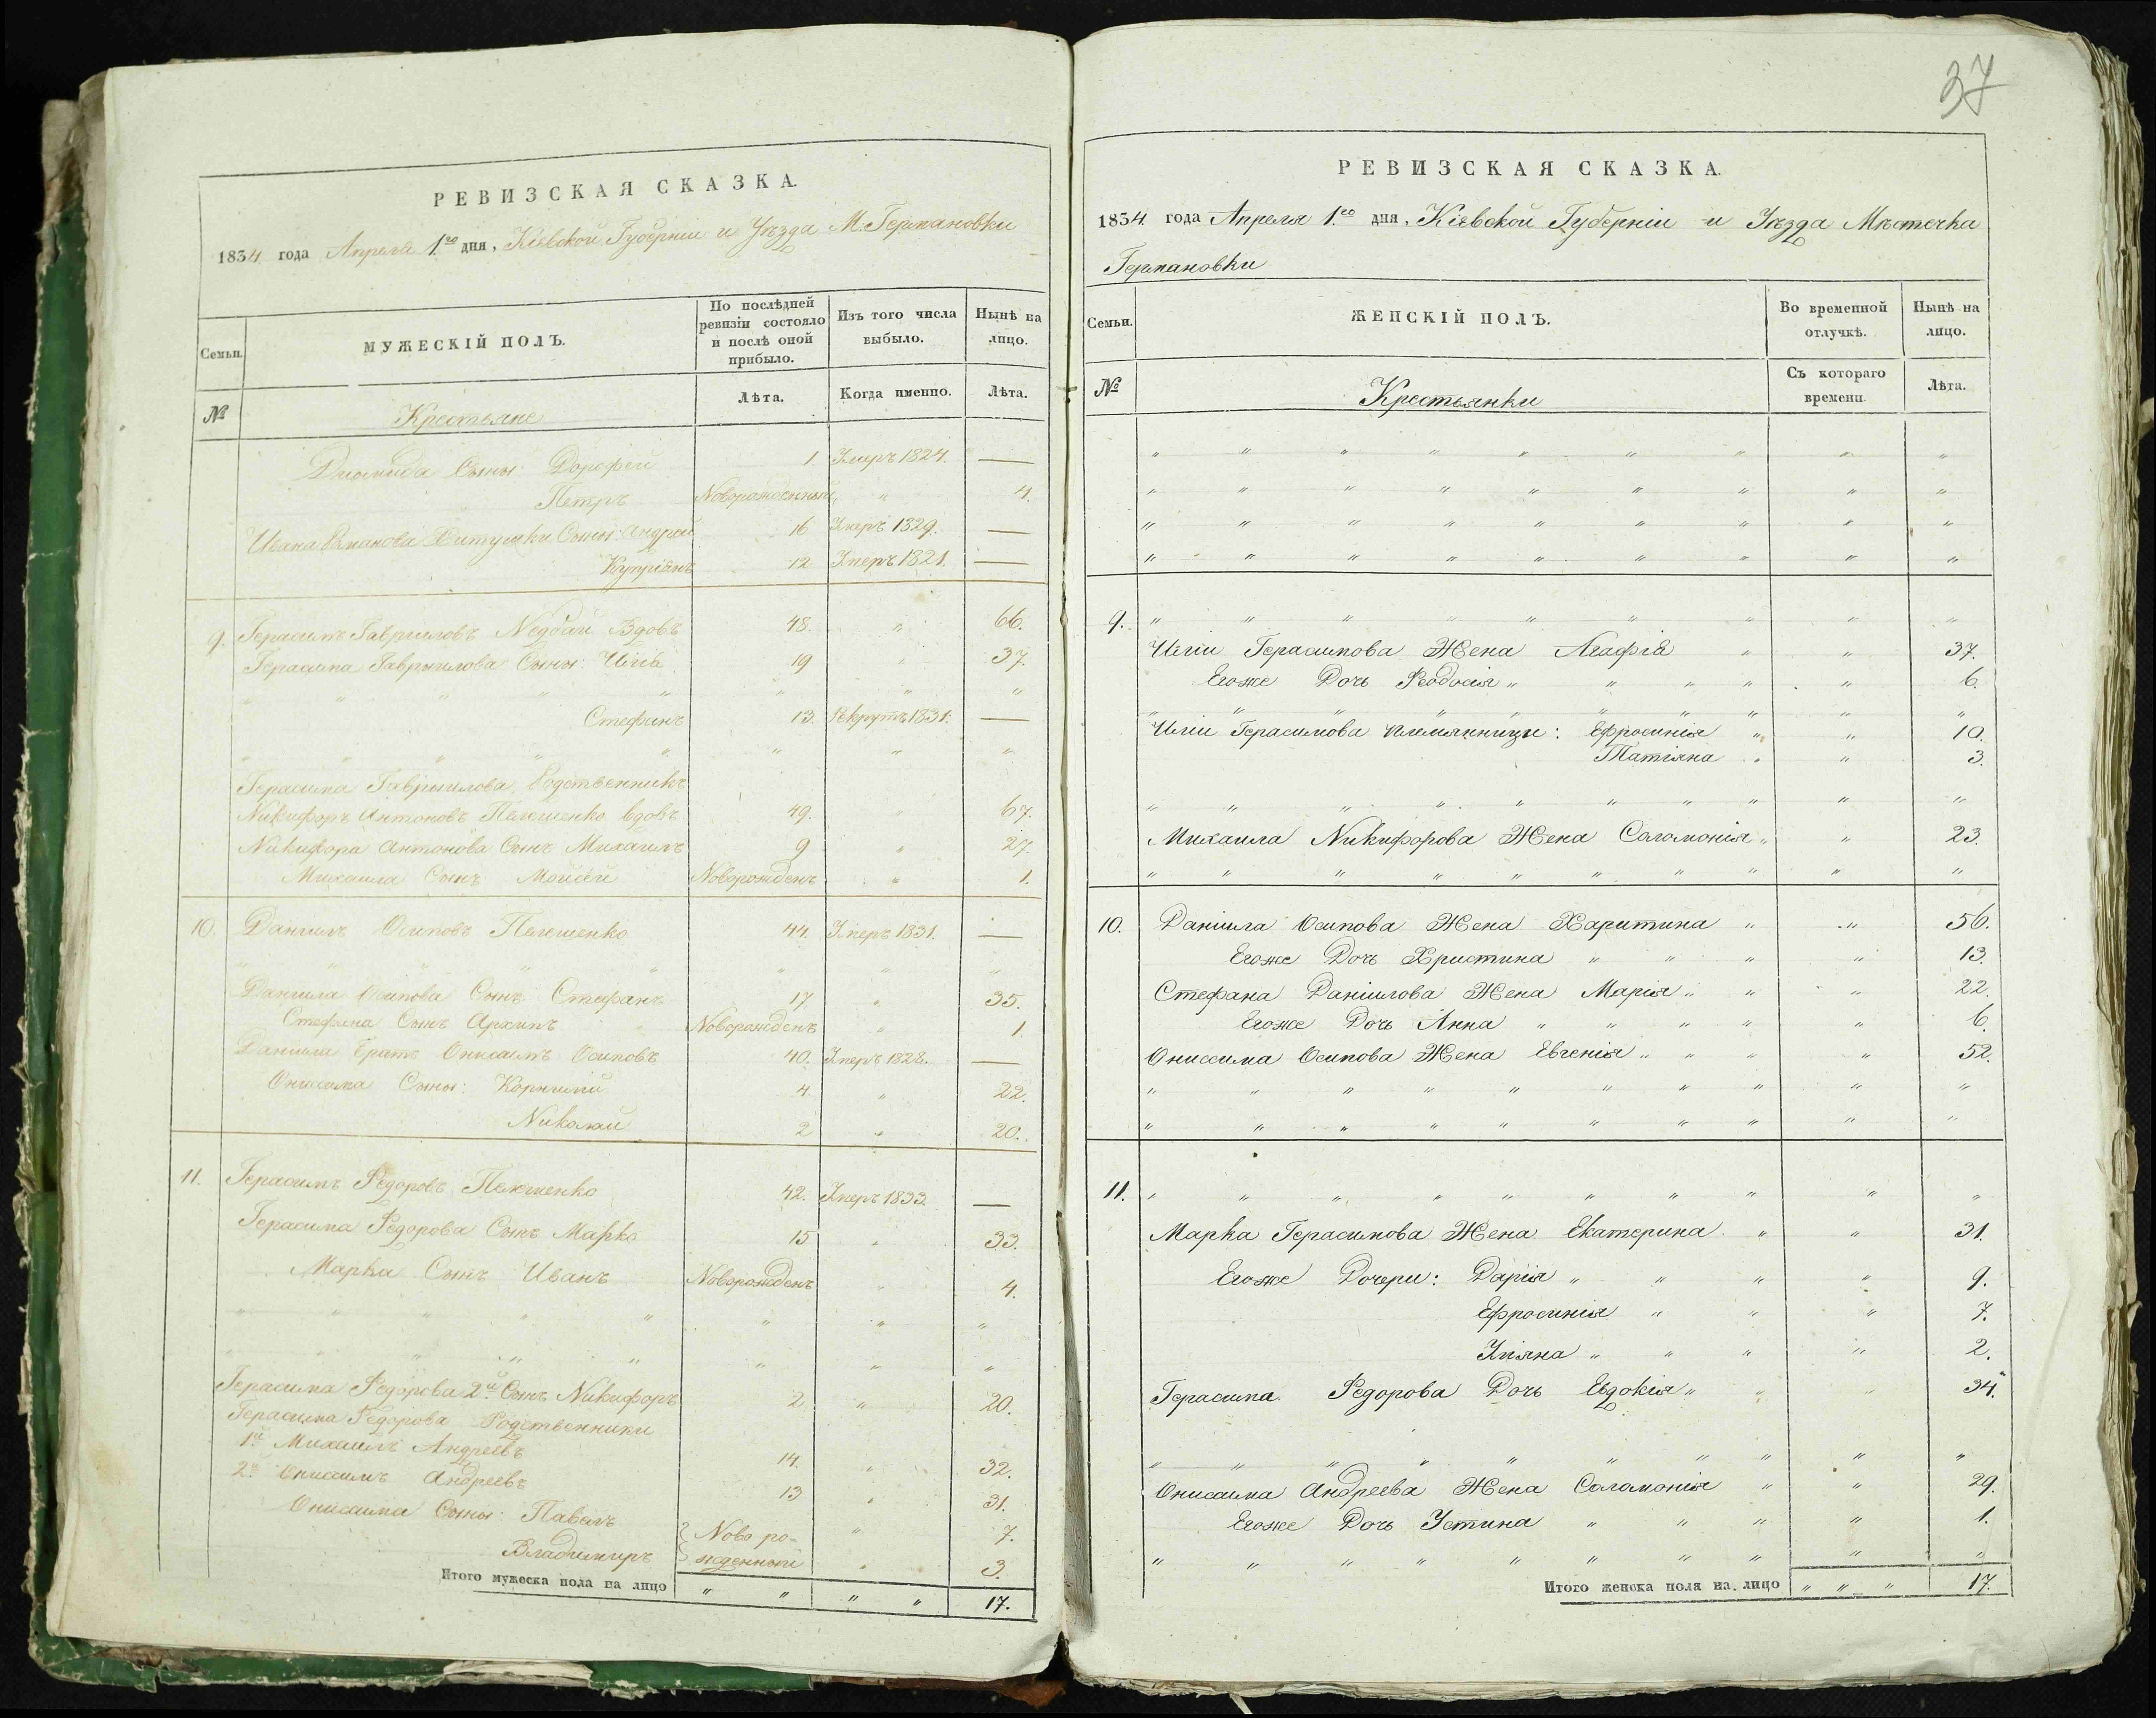 РЕВИЗСКАЯ СКАЗКА.
1834 года Апреля 1.го дня, Кіевской Губерніи и Уѣзда М. Германовки
Семьи.
МУЖЕСКІЙ ПОЛЪ.
По послѣдней ревизіи состояло и послѣ оной прибыло.
Изъ того числа выбыло.
Нынѣ на лицо.
№
Крестьяне
Лѣта.
Когда именно.
Лѣта.
Диомида Сыны: Дорофей 1. Умеръ 1824. —
Петръ Новорожденный " 4.
Ивана Сыны: Андрей 16 Умеръ 1829. —
Купріянъ 12 Умеръ 1821. —
9. Герасимъ Гавриловъ Недбай Вдовъ 48. " 66.
Герасима Гаврылова Сыны: Илія 19 " 37.
" " " " " " " "
Стефанъ 13. Рекрутъ 1831. —
" " " " " " " "
Герасима Гаврылова Родственникъ
Никифоръ Антоновъ Пелешенко вдовъ 49. " 67.
Никифора Антонова Сынъ Михаилъ 9 " 27.
Михаила Сынъ Моисей Новорожденъ " 1.
10. Даніилъ Осиповъ Пелешенко 44. Умеръ 1831. —
" " " " " " " "
Даніила Осипова Сынъ Стефанъ 17 " 35.
Стефана Сынъ Архипъ Новорожденъ " 1
Даніила братъ Онисимъ Осиповъ 40. Умеръ 1828. —
Онисима Сыны: Корнилій 4 " 22.
Николай 2 " 20.
11. Герасимъ Федоровъ Пелешенко 42. Умеръ 1833 —
Герасима Федорова Сынъ Марко 15 " 33.
Марка Сынъ Иванъ Новорожденъ " 4.
" " " " " " " "
" " " " " " " "
Герасима Федорова 2й Сынъ Никифоръ 2 " 20.
Герасима Федорова Родственники
1й Михаилъ Андреевъ 14. " 32.
2й Онисимъ Андреевъ 13 " 31.
Онисима Сыны: Павелъ Ново ро- " 7.
Владимиръ жденный " 3.
Итого мужеска пола на лицо " " " " 17.
37
РЕВИЗСКАЯ СКАЗКА.
1834 года Апреля 1.го дня, Кіевской Губерніи и Уѣзда Мѣстечка
Германовки
Семьи.
ЖЕНСКІЙ ПОЛЪ.
Во временной отлучкѣ.
Нынѣ на лицо.
№
Крестьянки
Съ котораго времени.
Лѣта.
" " " " " " " " "
" " " " " " " " "
" " " " " " " " "
" " " " " " " " "
9. " " " " " " " " "
Иліи Герасимова Жена Агафія " " 37.
Егоже Дочь Феодосія " " " " " 6.
" " " " " " " " " "
Иліи Герасимова племянницы: Ефросинія " " 10.
Татіяна " " 3.
" " " " " " " " " "
Михаила Никифорова Жена Соломонія " " 23.
" " " " " " " " " "
10. Даніила Осипова Жена Харитина " " 56.
Егоже Дочь Христина " " " " 13.
Стефана Даніилова Жена Марія " " " 22.
Егоже Дочь Анна " " " " " 6.
Ониссима Осипова Жена Евгенія " " " " 52.
" " " " " " " " " "
" " " " " " " " " "
11. " " " " " " " " " "
Марка Герасимова Жена Екатерина " " 31.
Егоже Дочери: Дарія " " " " 9.
Ефросинія " " " 7.
Уліяна " " " " 2.
Герасима Федорова Дочь Евдокія " " " 34.
" " " " " " " " "
Онисима Андреева Жена Соломонія " " 29.
Егоже Дочь Устина " " " " 1.
" " " " " " " " " "
Итого женска пола на лицо " " " 17.